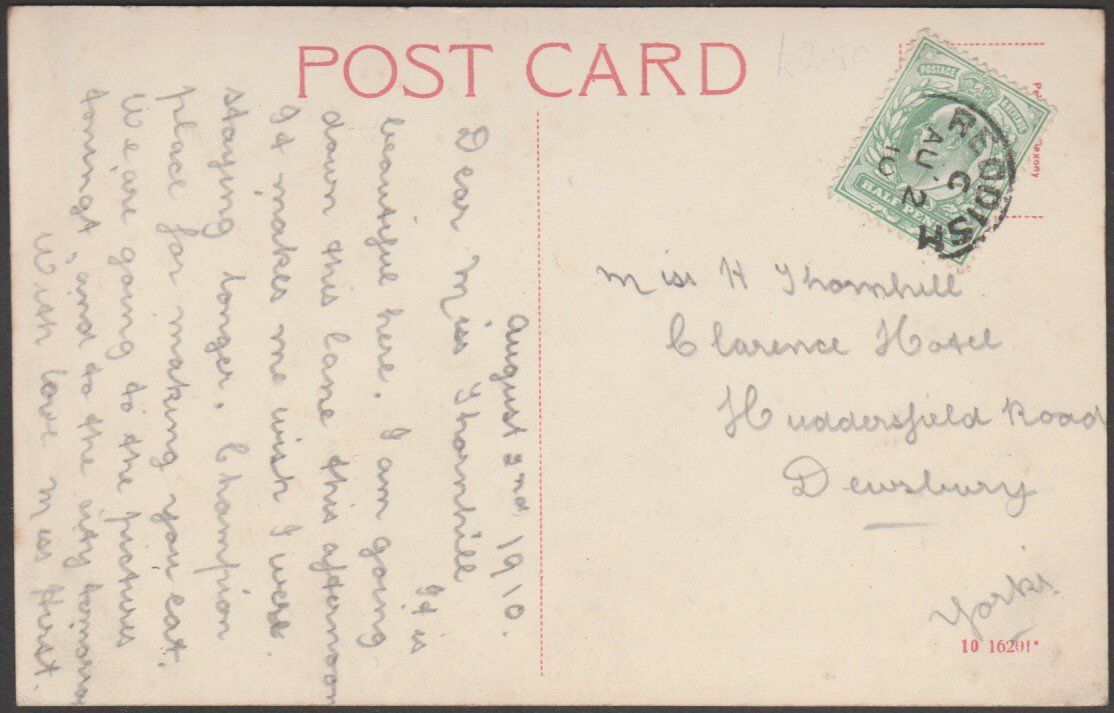 POST CARD
£2-50
POSTAGE
HALFPENNY
REDDISH
C
AU 2
10
August 2nd 1910.
Dear Miss Thornhill
It is
beautiful here. I am going
down this lane this afternoon
It makes me wish I were
staying longer. Champion
place for making you eat.
We are going to the pictures
toningt, and to the city tomorrow
With love Miss Hirst.
Miss H Thornhill.
Clarence Hotel
Huddersfield Road
Dewsbury
Yorks
10 16201*